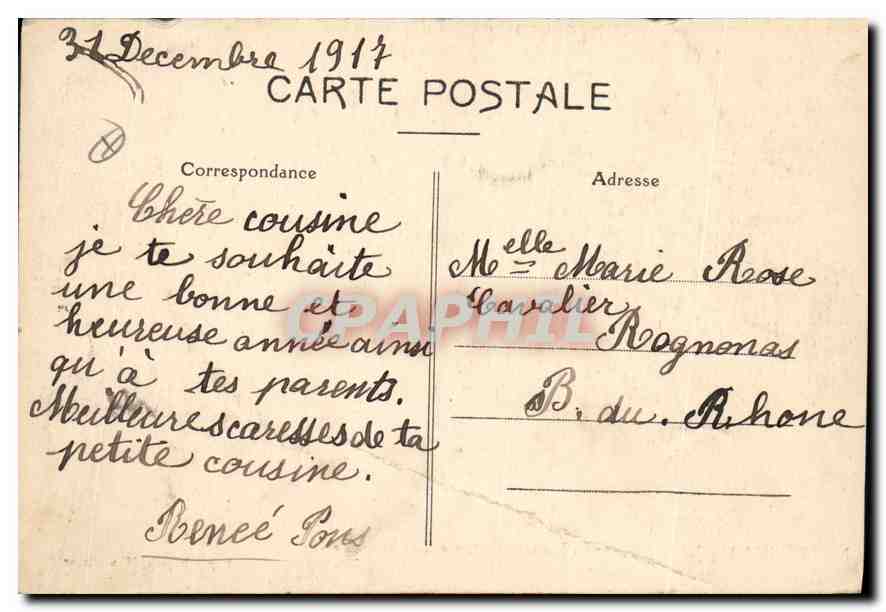 31 Decembre 1917
CARTE POSTALE
Correspondance
Chère cousine
je te souhaite
une bonne et
heureuse année ainsi
qu'à tes parents.
Meilleures caresses de ta
petite cousine.
Reneé Pons
Adresse
Melle Marie Rose
Cavalier
Rognonas
B. du. Rhone
CPAPHIL